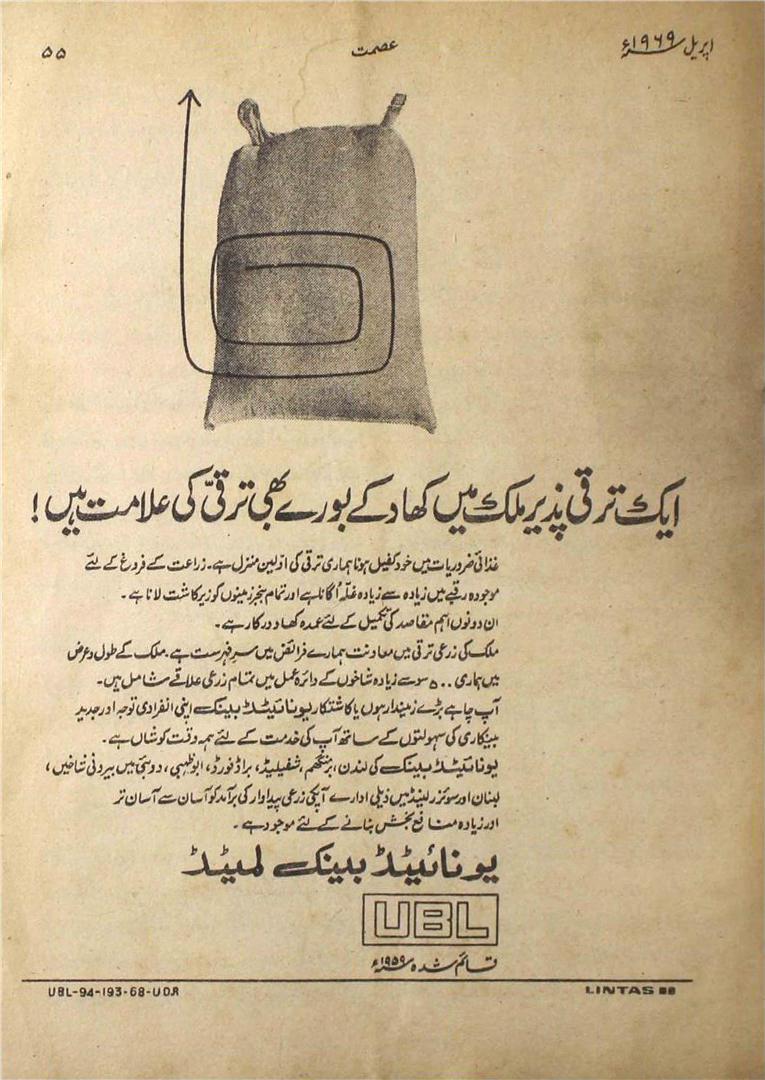 اپریل ۱۹۶۹ء
عصمت
۵۵
ایک ترقی پذیر ملک میں کھاد کے بورے بھی ترقی کی علامت ہیں!
غذائی ضروریات میں خود کفیل ہونا ہماری ترقی کی اولین منزل ہے۔ زراعت کے فروغ کے لئے
موجودہ رقبے میں زیادہ سے زیادہ غلہ اُگانا ہے اور تمام بنجر زمینوں کو زیر کاشت لانا ہے۔
ان دونوں اہم مقاصد کی تکمیل کے لئے عمدہ کھاد درکار ہے۔
ملک کی زرعی ترقی میں معاونت ہمارے فرائض میں سرِ فہرست ہے۔ ملک کے طول و عرض
میں ہماری ۵۰۰ سو سے زیادہ شاخوں کے دائرہ عمل میں تمام زرعی علاقے شامل ہیں۔
آپ چاہے بڑے زمیندار ہوں یا کاشتکار یونائیٹڈ بینک اپنی انفرادی توجہ اور جدید
بینکاری کی سہولتوں کے ساتھ آپ کی خدمت کے لئے ہمہ وقت کوشاں ہے۔
یونائیٹڈ بینک کی لندن، برمنگھم، شفیلیڈ، براڈفورڈ، ابوظہبی، دوبئی میں بیرونی شاخیں،
لبنان اور سوئزرلینڈ میں ذیلی ادارے آپکی زرعی پیداوار کی برآمد کو آسان سے آسان تر
اور زیادہ منافع بخش بنانے کے لئے موجود ہے۔
یونائیٹڈ بینک لمیٹڈ
UBL
قائم شدہ ۱۹۵۹ء
UBL-94-193-68-UDR
LINTAS